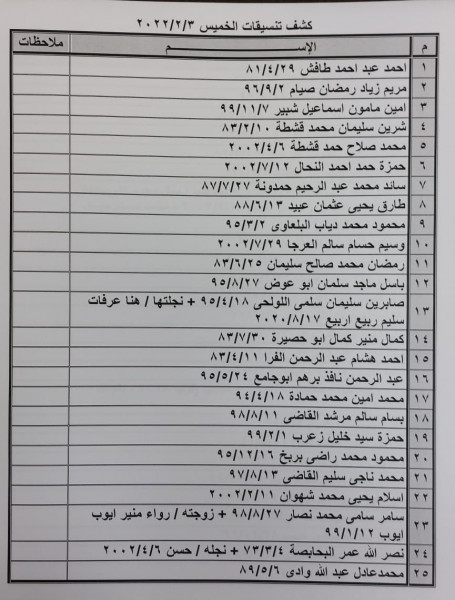 كشف تنسيقات الخميس ٢٠٢٢/٢/٣
م الإســـم ملاحظات
١ احمد عبد احمد طافش ٨١/٤/٢٩
٢ مريم زياد رمضان صيام ٩٦/٩/٢
٣ امين مامون اسماعيل شبير ٩٩/١١/٧
٤ شرين سليمان محمد قشطة ٨٣/٢/١٠
٥ محمد صلاح حمد قشطة ٢٠٠٢/٤/٦
٦ حمزة حمد احمد النحال ٢٠٠٢/٧/١٢
٧ سائد محمد عبد الرحيم حمدونة ٨٧/٧/٢٧
٨ طارق يحيى عثمان عبيد ٨٨/٦/١٣
٩ محمود محمد دياب البلعاوى ٩٥/٣/٢
١٠ وسيم حسام سالم العرجا ٢٠٠٢/٧/٢٩
١١ رمضان محمد صالح سليمان ٨٣/٦/٢٥
١٢ باسل ماجد سلمان ابو عوض ٩٥/٨/٢٧
١٣ صابرين سليمان سلمى اللولحى ٩٥/٤/١٨ + نجلتها / هنا عرفات
سليم ربيع اربيع ٢٠٢٠/٨/١٧
١٤ كمال منير كمال ابو حصيرة ٨٣/٧/٣٠
١٥ احمد هشام عبد الرحمن الفرا ٨٣/٤/١١
١٦ عبد الرحمن نافذ برهم ابوجامع ٩٥/٥/٢٤
١٧ محمد امين محمد حمادة ٩٤/٤/١٨
١٨ بسام سالم مرشد القاضى ٩٨/٨/١١
١٩ حمزة سيد خليل زعرب ٩٩/٢/١
٢٠ محمود محمد راضى بربخ ٩٥/١٢/١٦
٢١ محمد ناجى سليم القاضى ٩٧/٨/١٣
٢٢ اسلام يحيى محمد شهوان ٢٠٠٢/٢/١١
٢٣ سامر سامى محمد نصار ٩٨/٨/٢٧ + زوجته / رواء منير ايوب
ايوب ٩٩/١/١٢
٢٤ نصر الله عمر البحابصة ٧٣/٣/٤ + نجله / حسن ٢٠٠٢/٤/٦
٢٥ محمدعادل عبد الله وادى ٨٩/٥/٦